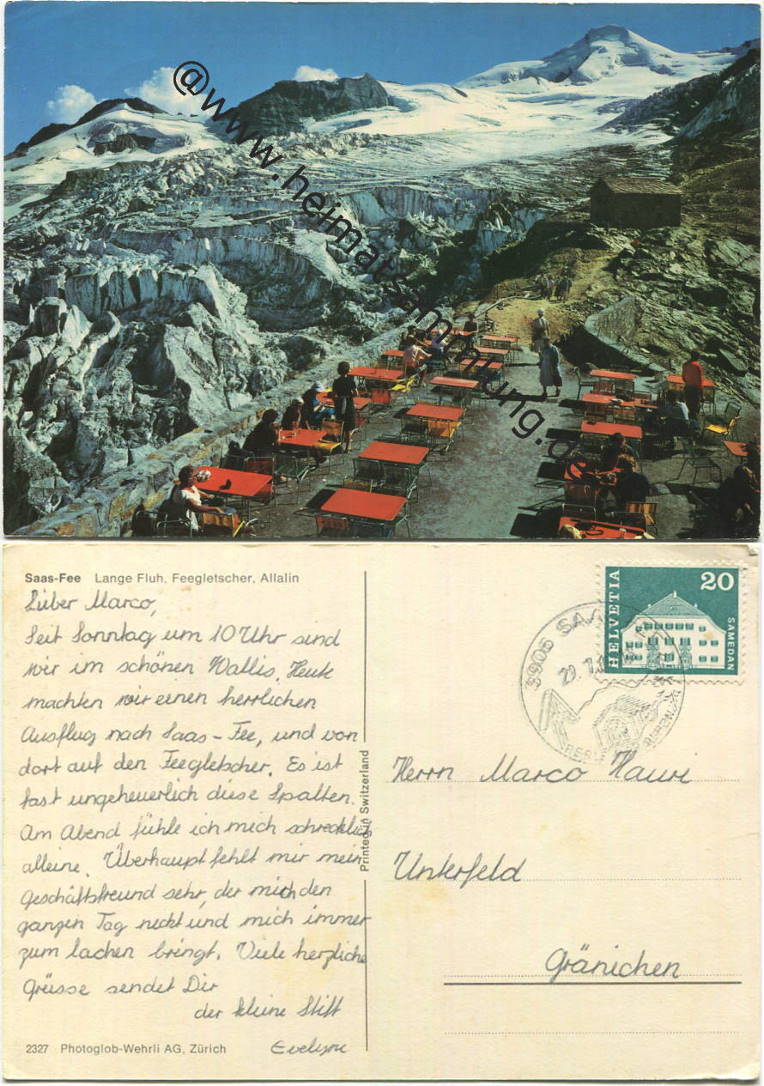 @www.heimatsammlung.de
Saas-Fee Lange Fluh, Feegletscher, Allalin
Lieber Marco,
Seit Sonntag um 10 Uhr sind
wir im schönen Wallis. Heute
machten wir einen herrlichen
Ausflug nach Saas-Fee, und von
dort auf den Feegletscher. Es ist
fast ungeheuerlich diese Spalten.
Am Abend fühle ich mich schrecklich
alleine. Überhaupt fehlt mir mein
Geschäftsfreund sehr, der mich den
ganzen Tag neckt und mich immer
zum lachen bringt. Viele herzliche
Grüsse sendet Dir
der kleine Stift
Evelyne
2327 Photoglob-Wehrli AG, Zürich
Printed in Switzerland
HELVETIA
20
SAMEDAN
3906 SAAS
Herrn Marco Hauri
Unterfeld
Gränichen